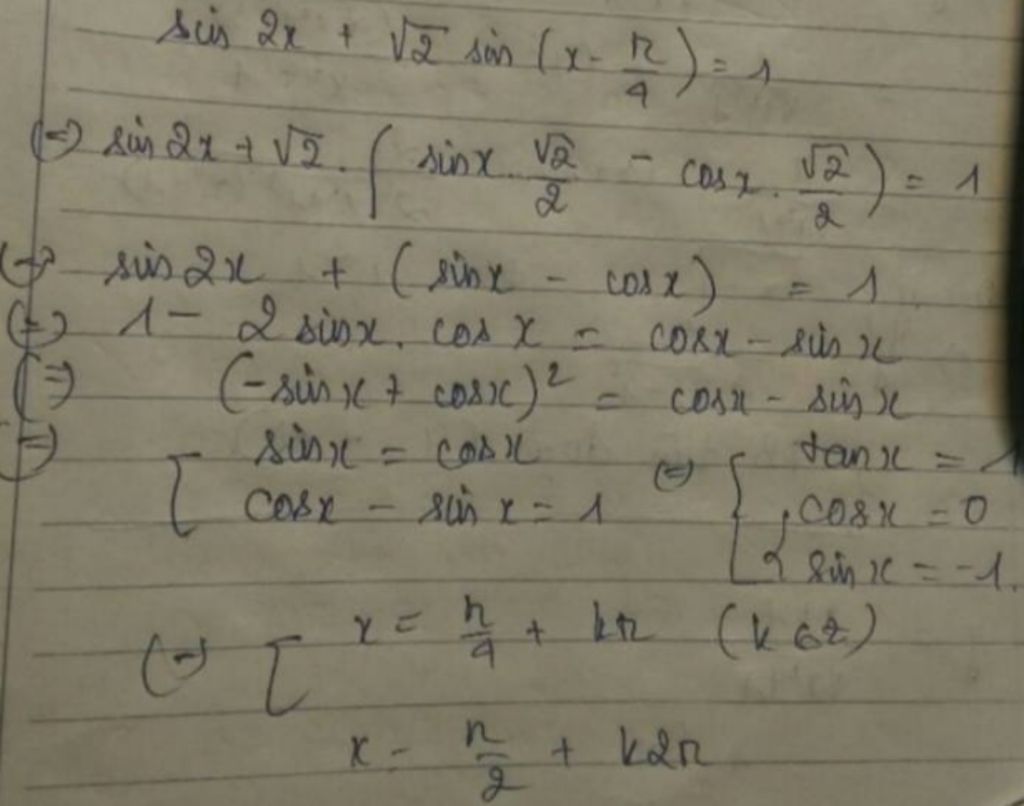 sin 2x + √2 sin (x - π/4) = 1
(=) sin 2x + √2 . ( sinx . √2/2 - cosx . √2/2 ) = 1
(=) sin 2x + (sinx - cosx) = 1
(=) 1 - 2 sinx . cos x = cosx - sin x
(=) (-sinx + cosx)² = cosx - sin x
(=) [ sinx = cosx (=) [ tanx = 1
cosx - sin x = 1 { cosx = 0
sinx = -1.
(=) [ x = π/4 + kπ (k ∈ z)
x = π/2 + k2π